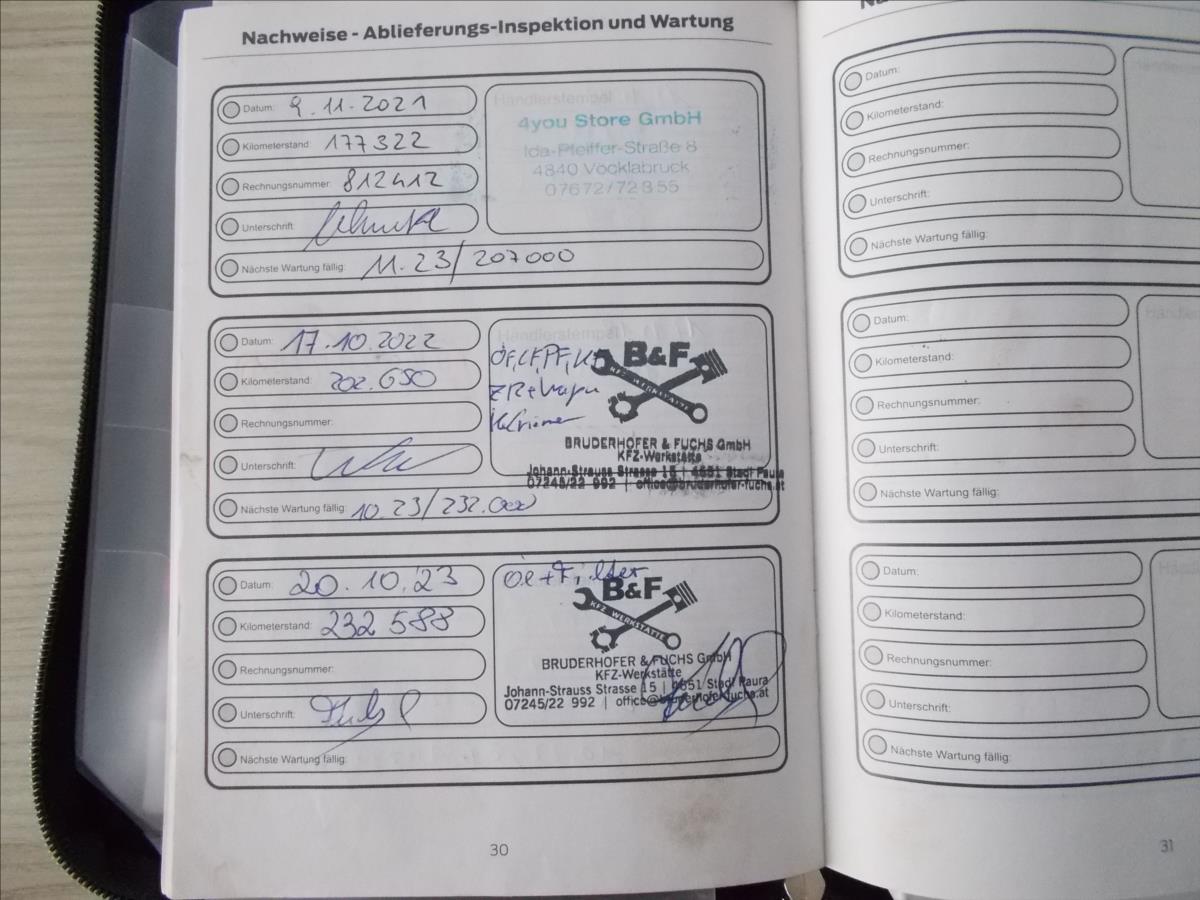 Nachweise - Ablieferungs-Inspektion und Wartung
Datum: 9.11.2021
Kilometerstand: 177322
Rechnungsnummer: 812412
Unterschrift:
Nächste Wartung fällig: 11.23/207000
Händlerstempel
4you Store GmbH
Ida-Pfeiffer-Straße 8
4840 Vöcklabruck
07672/72855
Datum: 17.10.2022
Kilometerstand: 202.650
Rechnungsnummer:
Unterschrift:
Nächste Wartung fällig: 10.23/232.000
Händlerstempel
B&F
KFZ WERKSTÄTTE
BRUDERHOFER & FUCHS GmbH
KFZ-Werkstätte
Johann-Strauss Strasse 15 | 4651 Stadl Paura
07245/22 992 | office@bruderhofer-fuchs.at
Datum: 20.10.23
Kilometerstand: 232 588
Rechnungsnummer:
Unterschrift:
Nächste Wartung fällig:
Öl + Filter
B&F
KFZ WERKSTÄTTE
BRUDERHOFER & FUCHS GmbH
KFZ-Werkstätte
Johann-Strauss Strasse 15 | 4651 Stadl Paura
07245/22 992 | office@bruderhofer-fuchs.at
30
Datum:
Kilometerstand:
Rechnungsnummer:
Unterschrift:
Nächste Wartung fällig:
Datum:
Kilometerstand:
Rechnungsnummer:
Unterschrift:
Nächste Wartung fällig:
Datum:
Kilometerstand:
Rechnungsnummer:
Unterschrift:
Nächste Wartung fällig:
31